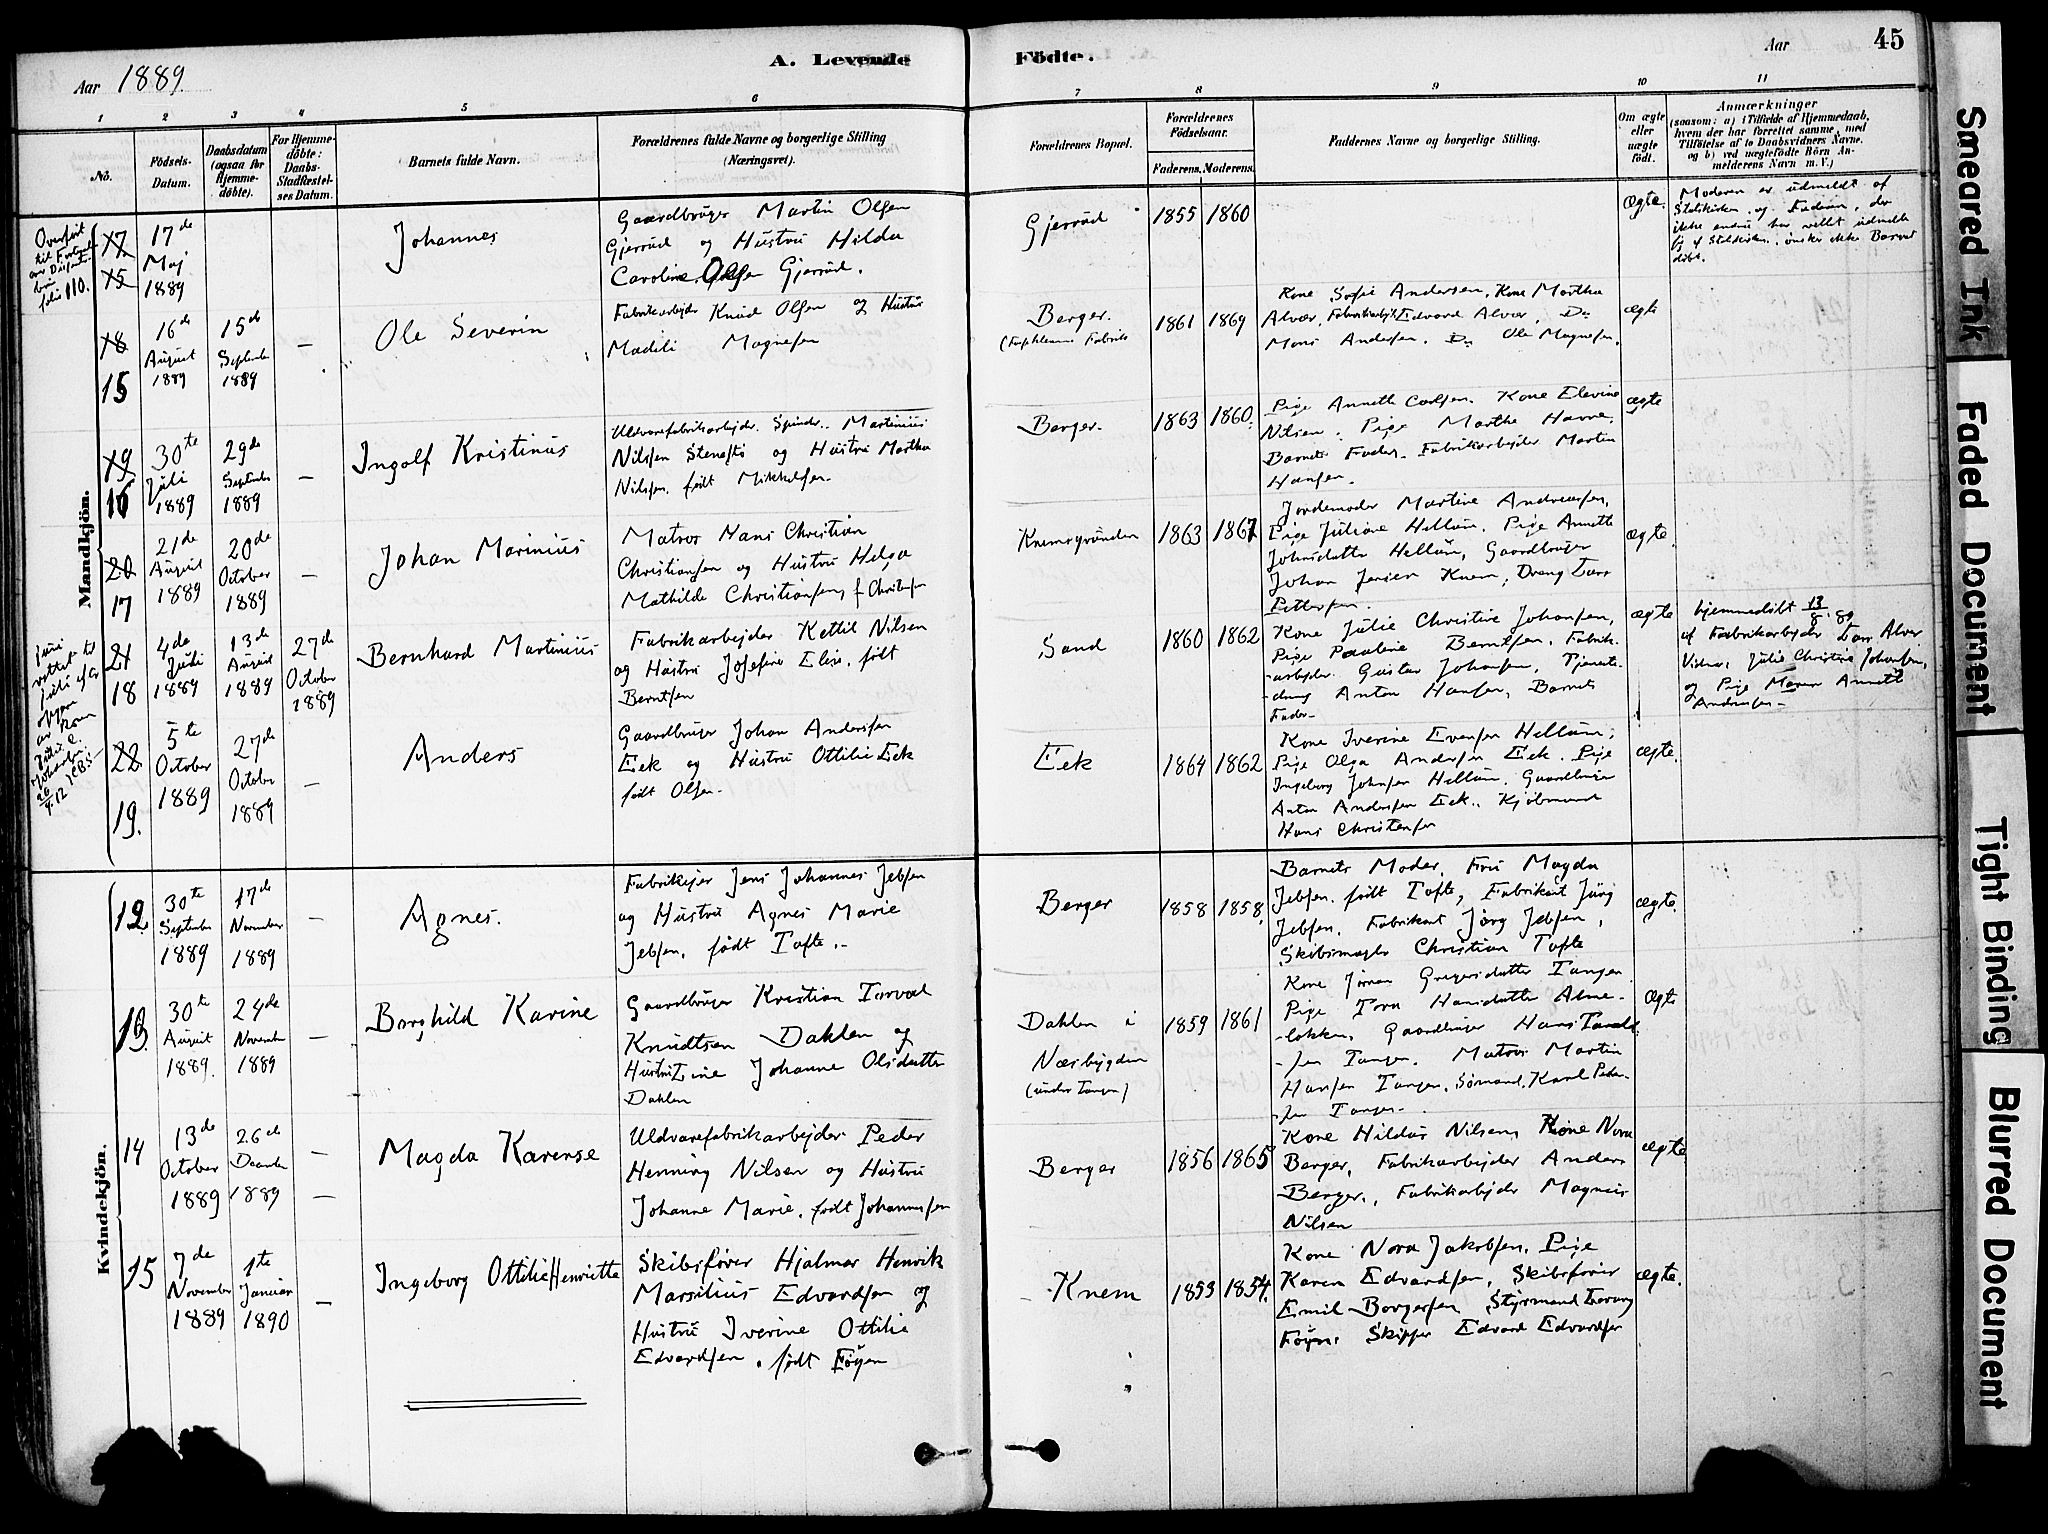 Aar 1889.
A. Levende
Fødte.
Aar
45
1
2
3
4
5
6
7
8
9
10
11
No.
Fødsels-
Datum.
Daabsdatum
(ogsaa for
Hjemme-
døbte).
For Hjemme-
døbte:
Daabs-
Stadfæstel-
ses Datum.
Barnets fulde Navn.
Forældrenes fulde Navne og borgerlige Stilling
(Næringsvei).
Forældrenes Bopæl.
Forældrenes
Fødselsaar.
Faderens.
Moderens.
Faddernes Navne og borgerlige Stilling.
Om ægte
eller
uægte
født.
Anmærkninger
(saasom: a) i Tilfælde af Hjemmedaab,
hvem der har forrettet samme, med
Tilføielse af to Daabsvidners Navne,
og b) ved uægtefødte Børn An-
melderens Navn m. V.)
Mandkjön.
Overført
folio 110.
17
15
17de
Maj
1889
Johannes
Gaardbruger Martin Olsen
Gjerrud og Hustru Hilda
Caroline Olsen Gjerrud.
Gjerrud
1855
1860
Ægte.
Moderen er udmeldt af
Statskirken og Faderen, der
ikke endnu har villet udmelde
sig af Statskirken, ønsker ikke Barnet
døbt.
18
15
16de
August
1889
15de
September
1889
–
Ole Severin
Fabrikarbejder Knud Olsen og Hustru
Madili Magnesen
Berger.
1861
1869
Kone Sofie Andersen, Kone Martha
Alvær, Fabrikarbejd. Edvard Alvær, Do
Mons Andersen. Do Ole Magnesen.
ægte
19
16
30te
Juli
1889
29de
September
1889
–
Ingolf Kristinus
Uldvarefabrikarbejder. Spinder. Martinius
Nilssen Stensti og Hustru Martha
Nilssen. født Mikkelsen.
Berger.
1863
1860.
Pige Annette Carlsen. Kone Elevine
Nilsen. Pige Marthe Havne.
Barnets Fader. Fabrikarbejder Martin
Hansen.
ægte
20
17
21de
August
1889
20de
October
1889
–
Johan Marinius
Matros Hans Christian
Christiansen og Hustru Helga
Mathilde Christiansen, f. Christensen
Knemsgrunden
1863
1867
Jordemoder Martine Andreassen,
Pige Juliane Hellum. Pige Annette
Johnsdatter Hellum, Gaardbruger
Johan Jensen Knem, Dreng Lars
Pettersen.
ægte.
21
18
4de
Juli
1889
13de
August
1889
27de
October
1889
Bernhard Martinius
Fabrikarbejder Kettil Nilsen
og Hustru Josefine Elise. født
Berntsen
Sand
1860
1862
Kone Julie Christine Johansen,
Pige Pauline Berntsen, Fabrik-
-arbejder Gustav Johansen, Tjeneste-
-dreng Anton Hansen, Barnets
Fader.
ægte
hjemmedøbt 13/8. 89
af Fabrikarbejder Lars Alver
Vidner, Julie Christine Johansen,
og Pige Maren Annette
Andresen.
22
19.
5te
October
1889
27de
October
1889
–
Anders
Gaardbruger Johan Anderssen
Eek og Hustru Ottilie Eek
født Olsen.
Eek
1864
1862
Kone Iverine Evensen Hellum;
Pige Olga Andersen Eek. Pige
Ingeborg Johnsen Hellum. Gaardbruger
Anton Anderssen Eek. Kjøbmand
Hans Christensen
ægte.
Kvindekjön.
12.
30te
September
1889
17de
November
1889
–
Agnes.
Fabrikejer Jens Johannes Jebsen
og Hustru Agnes Marie
Jebsen, født Tofte.
Berger
1858
1858.
Barnets Moder, Fru Magda
Jebsen født Tofte, Fabrikant Jürg
Jebsen. Fabrikant Jørg Jebsen,
Skibsmægler Christian Tofte
ægte.
13.
30te
August
1889.
24de
November
1889
–
Borghild Karine
Gaardbruger Kristian Torval
Knudtsen Dahlen og
Hustru Line Johanne Olsdatter
Dahlen
Dahlen i
Næsbygden
(under Tangen)
1859
1861
Kone Jøran Gregersdatter Tangen
Pige Tora Hansdatter Alme-
-lokken, Gaardbruger Hans
-sen Tangen. Matros Martin
Hansen Tangen. Sømand. Karl Peder-
-sen Tangen.
Ægte
14
13de
October
1889
26de
December
1889
–
–
Magda Karense
Uldvarefabrikarbejder Peder
Henning Nilsen og Hustru
Johanne Marie. født Johannesen
Berger
1856
1865
Kone Hildur Nilsen, Kone Nora
Berger, Fabrikarbejder Anders
Berger, Fabrikarbejder Magnus
Nilsen
ægte
15
7de
November
1889
1te
Januar
1890
–
Ingeborg Ottilie Henriette
Skibsfører Hjalmar Henrik
Marsilius Edvardsen og
Hustru Iverine Ottilie
Edvardsen. født Føyen
Knem
1853
1854.
Kone Nora Jakobsen, Pige
Karen Edvardsen, Skibsfører
Emil Borgersen, Styrmand
Føyn. Skipper Edvard Edvardsen
ægte.
Smeared Ink
Faded Document
Tight Binding
Blurred Document